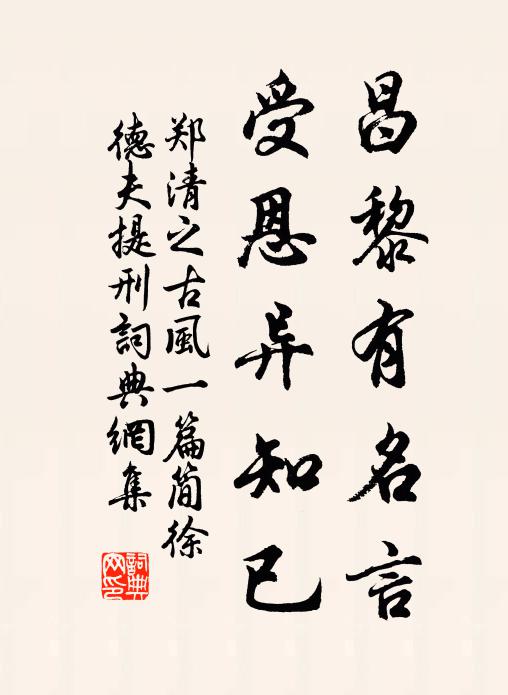 昌黎有名言
受恩异知已
郑清之古風一篇简徐
德夫提刑詞典網集
詞典網印